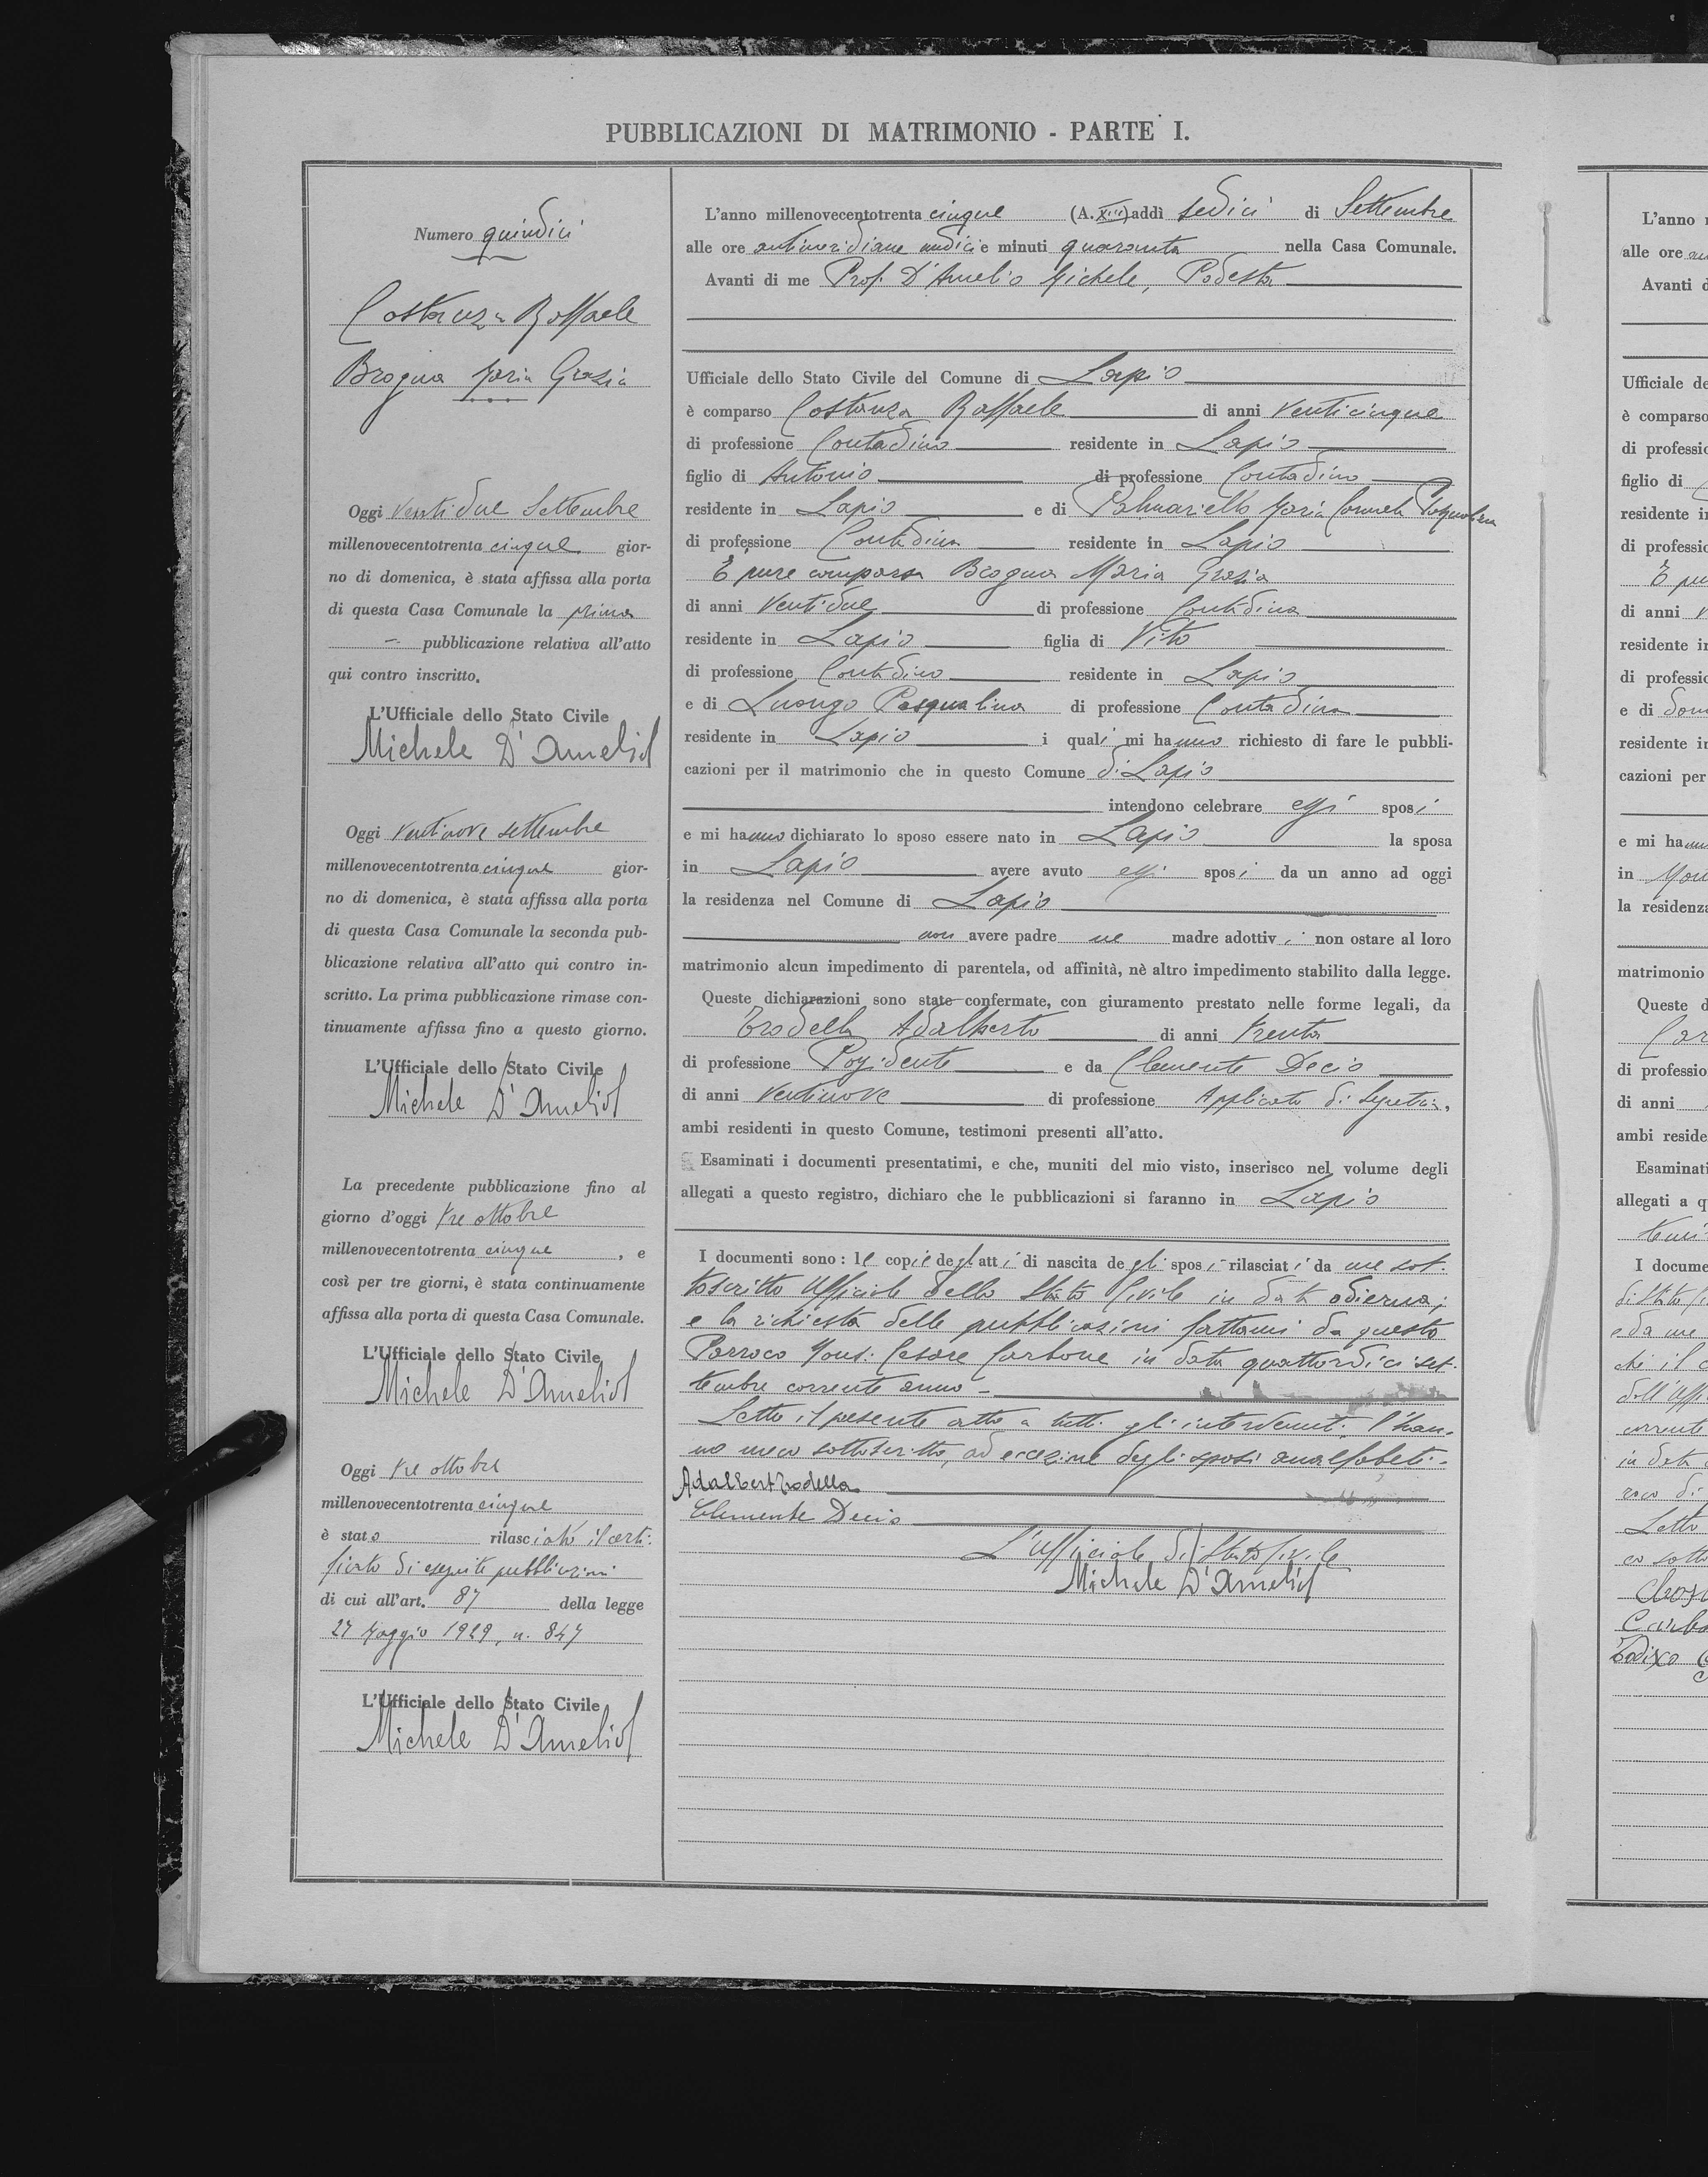 PUBBLICAZIONI DI MATRIMONIO - PARTE I.
Numero quindici
Costanza Raffaele
Brogna Maria Grazia
Oggi ventidue Settembre
millenovecentotrenta cinque gior-
no di domenica, è stata affissa alla porta
di questa Casa Comunale la prima
pubblicazione relativa all'atto
qui contro inscritto.
L'Ufficiale dello Stato Civile
Michele D'Amelio
Oggi ventinove settembre
millenovecentotrenta cinque gior-
no di domenica, è stata affissa alla porta
di questa Casa Comunale la seconda pub-
blicazione relativa all'atto qui contro in-
scritto. La prima pubblicazione rimase con-
tinuamente affissa fino a questo giorno.
L'Ufficiale dello Stato Civile
Michele D'Amelio
La precedente pubblicazione fino al
giorno d'oggi tre ottobre
millenovecentotrenta cinque, e
così per tre giorni, è stata continuamente
affissa alla porta di questa Casa Comunale.
L'Ufficiale dello Stato Civile
Michele D'Amelio
Oggi tre ottobre
millenovecentotrenta cinque
è stato rilasciato il certi-
ficato di eseguite pubblicazioni
di cui all'art. 87 della legge
27 Maggio 1929, n. 847
L'Ufficiale dello Stato Civile
Michele D'Amelio
L'anno millenovecentotrenta cinque (A. XIII) addì sedici di Settembre
alle ore antimeridiane undici e minuti quaranta nella Casa Comunale.
Avanti di me Prof. D'Amelio Michele, Podestà
Ufficiale dello Stato Civile del Comune di Lapio
è comparso Costanza Raffaele di anni venticinque
di professione Contadino residente in Lapio
figlio di Antonio di professione Contadino
residente in Lapio e di Palmariello Maria Carmela Pasqualina
di professione Contadina residente in Lapio
È pure comparsa Brogna Maria Grazia
di anni ventidue di professione Contadina
residente in Lapio figlia di Vito
di professione Contadino residente in Lapio
e di Luongo Pasqualina di professione Contadina
residente in Lapio i quali mi hanno richiesto di fare le pubbli-
cazioni per il matrimonio che in questo Comune di Lapio
intendono celebrare essi sposi
e mi hanno dichiarato lo sposo essere nato in Lapio la sposa
in Lapio avere avuto essi sposi da un anno ad oggi
la residenza nel Comune di Lapio
non avere padre nè madre adottivi non ostare al loro
matrimonio alcun impedimento di parentela, od affinità, nè altro impedimento stabilito dalla legge.
Queste dichiarazioni sono state confermate, con giuramento prestato nelle forme legali, da
Trodella Adalberto di anni trenta
di professione Possidente e da Clemente Decio
di anni ventinove di professione Applicato di Segreteria,
ambi residenti in questo Comune, testimoni presenti all'atto.
Esaminati i documenti presentatimi, e che, muniti del mio visto, inserisco nel volume degli
allegati a questo registro, dichiaro che le pubblicazioni si faranno in Lapio
I documenti sono: le copie degli atti di nascita degli sposi rilasciati da me sot-
toscritto Ufficiale dello Stato Civile in data odierna;
e la richiesta delle pubblicazioni fattami da questo
Parroco Mons. Cesare Carbone in data quattordici set-
tembre corrente anno -
Letto il presente atto a tutti gli intervenuti, l'han-
no meco sottoscritto, ad eccezione degli sposi analfabeti -
Adalbert Trodella
Clemente Decio
L'ufficiale di Stato Civile
Michele D'Amelio
L'anno
alle ore
Avanti d
Ufficiale de
è comparso
di professio
figlio di
residente in
di professio
di anni
residente in
di professio
e di
residente in
cazioni per
e mi ha
in
la residenza
matrimonio
Queste d
di professio
di anni
ambi reside
Esaminati
allegati a q
I docume
e da me
corrente
Letto